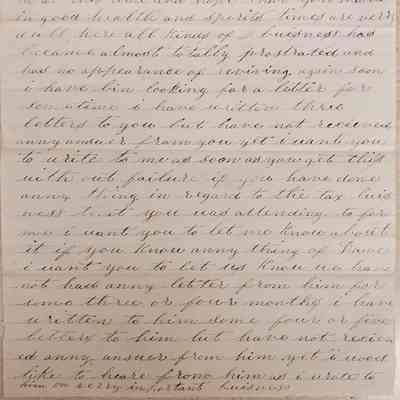 in good health and spirits times are very
dull here all kinds of buisness has
became almost totally prostrated and
has no appearance of reviving again soon
i have bin looking for a letter for
sometime i have written three
letters to you but have not received
anny answer from you yet i want you
to write to me as soon as you get this
with out failure if you have done
anny thing in regard to the tax buis
ness that you was attending to for
me i want you to let me know about
it if you know anny thing of
i want you to let us know we have
not had anny letter from him for
some three or four months i have
written to him some four or five
letters to him but have not reciev
ed anny answer from him yet i wood
like to heare from him as i wrote to
him on verry important buisness